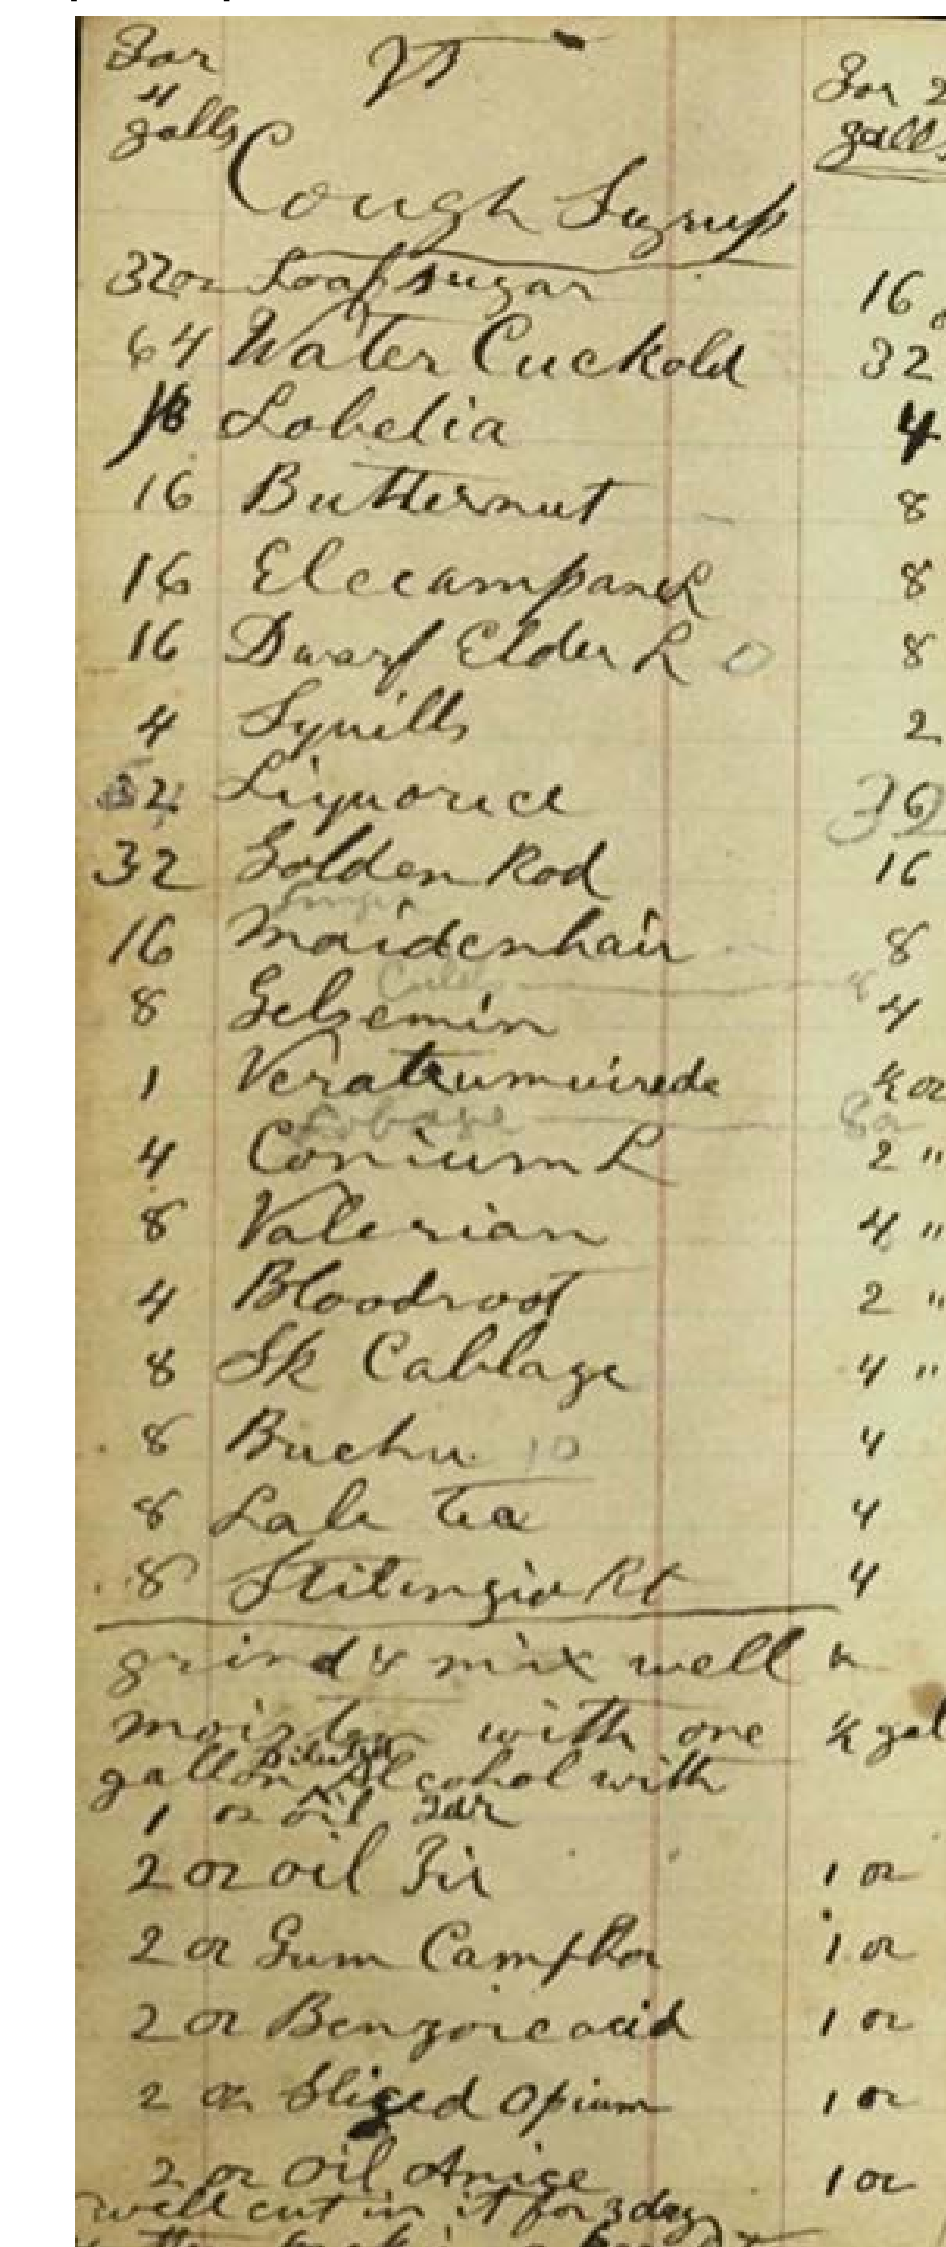 For
4
galls
For 2
galls
Cough Syrup
32oz Loaf sugar 16
64 Water Cuckold 32
16 Lobelia 4
16 Butternut 8
16 Elecampane R 8
16 Dwarf Elder R 0 8
4 Squills 2
32 Liquorice 32
32 Golden Rod 16
16 Maidenhair 8
Cubebs 8
8 Gelsemin 4
1 Veratrumvirede ½ oz
4 Conium L 2 "
8 Valerian 4 "
4 Bloodroot 2 "
8 Sk Cabbage 4 "
8 Buchu 10 4
8 Lab tea 4
8 Stilingia Rt 4
grind & mix well
moisten with one ½ gal
Diluted
gallon Alcohol with
1 oz oil Tar
2 oz oil Fir 1 oz
2 oz Gum Camphor 1 oz
2 oz Benzoic acid 1 oz
2 oz Sliced Opium 1 oz
2 oz Oil Anise 1 oz
well cut in it for 3 days